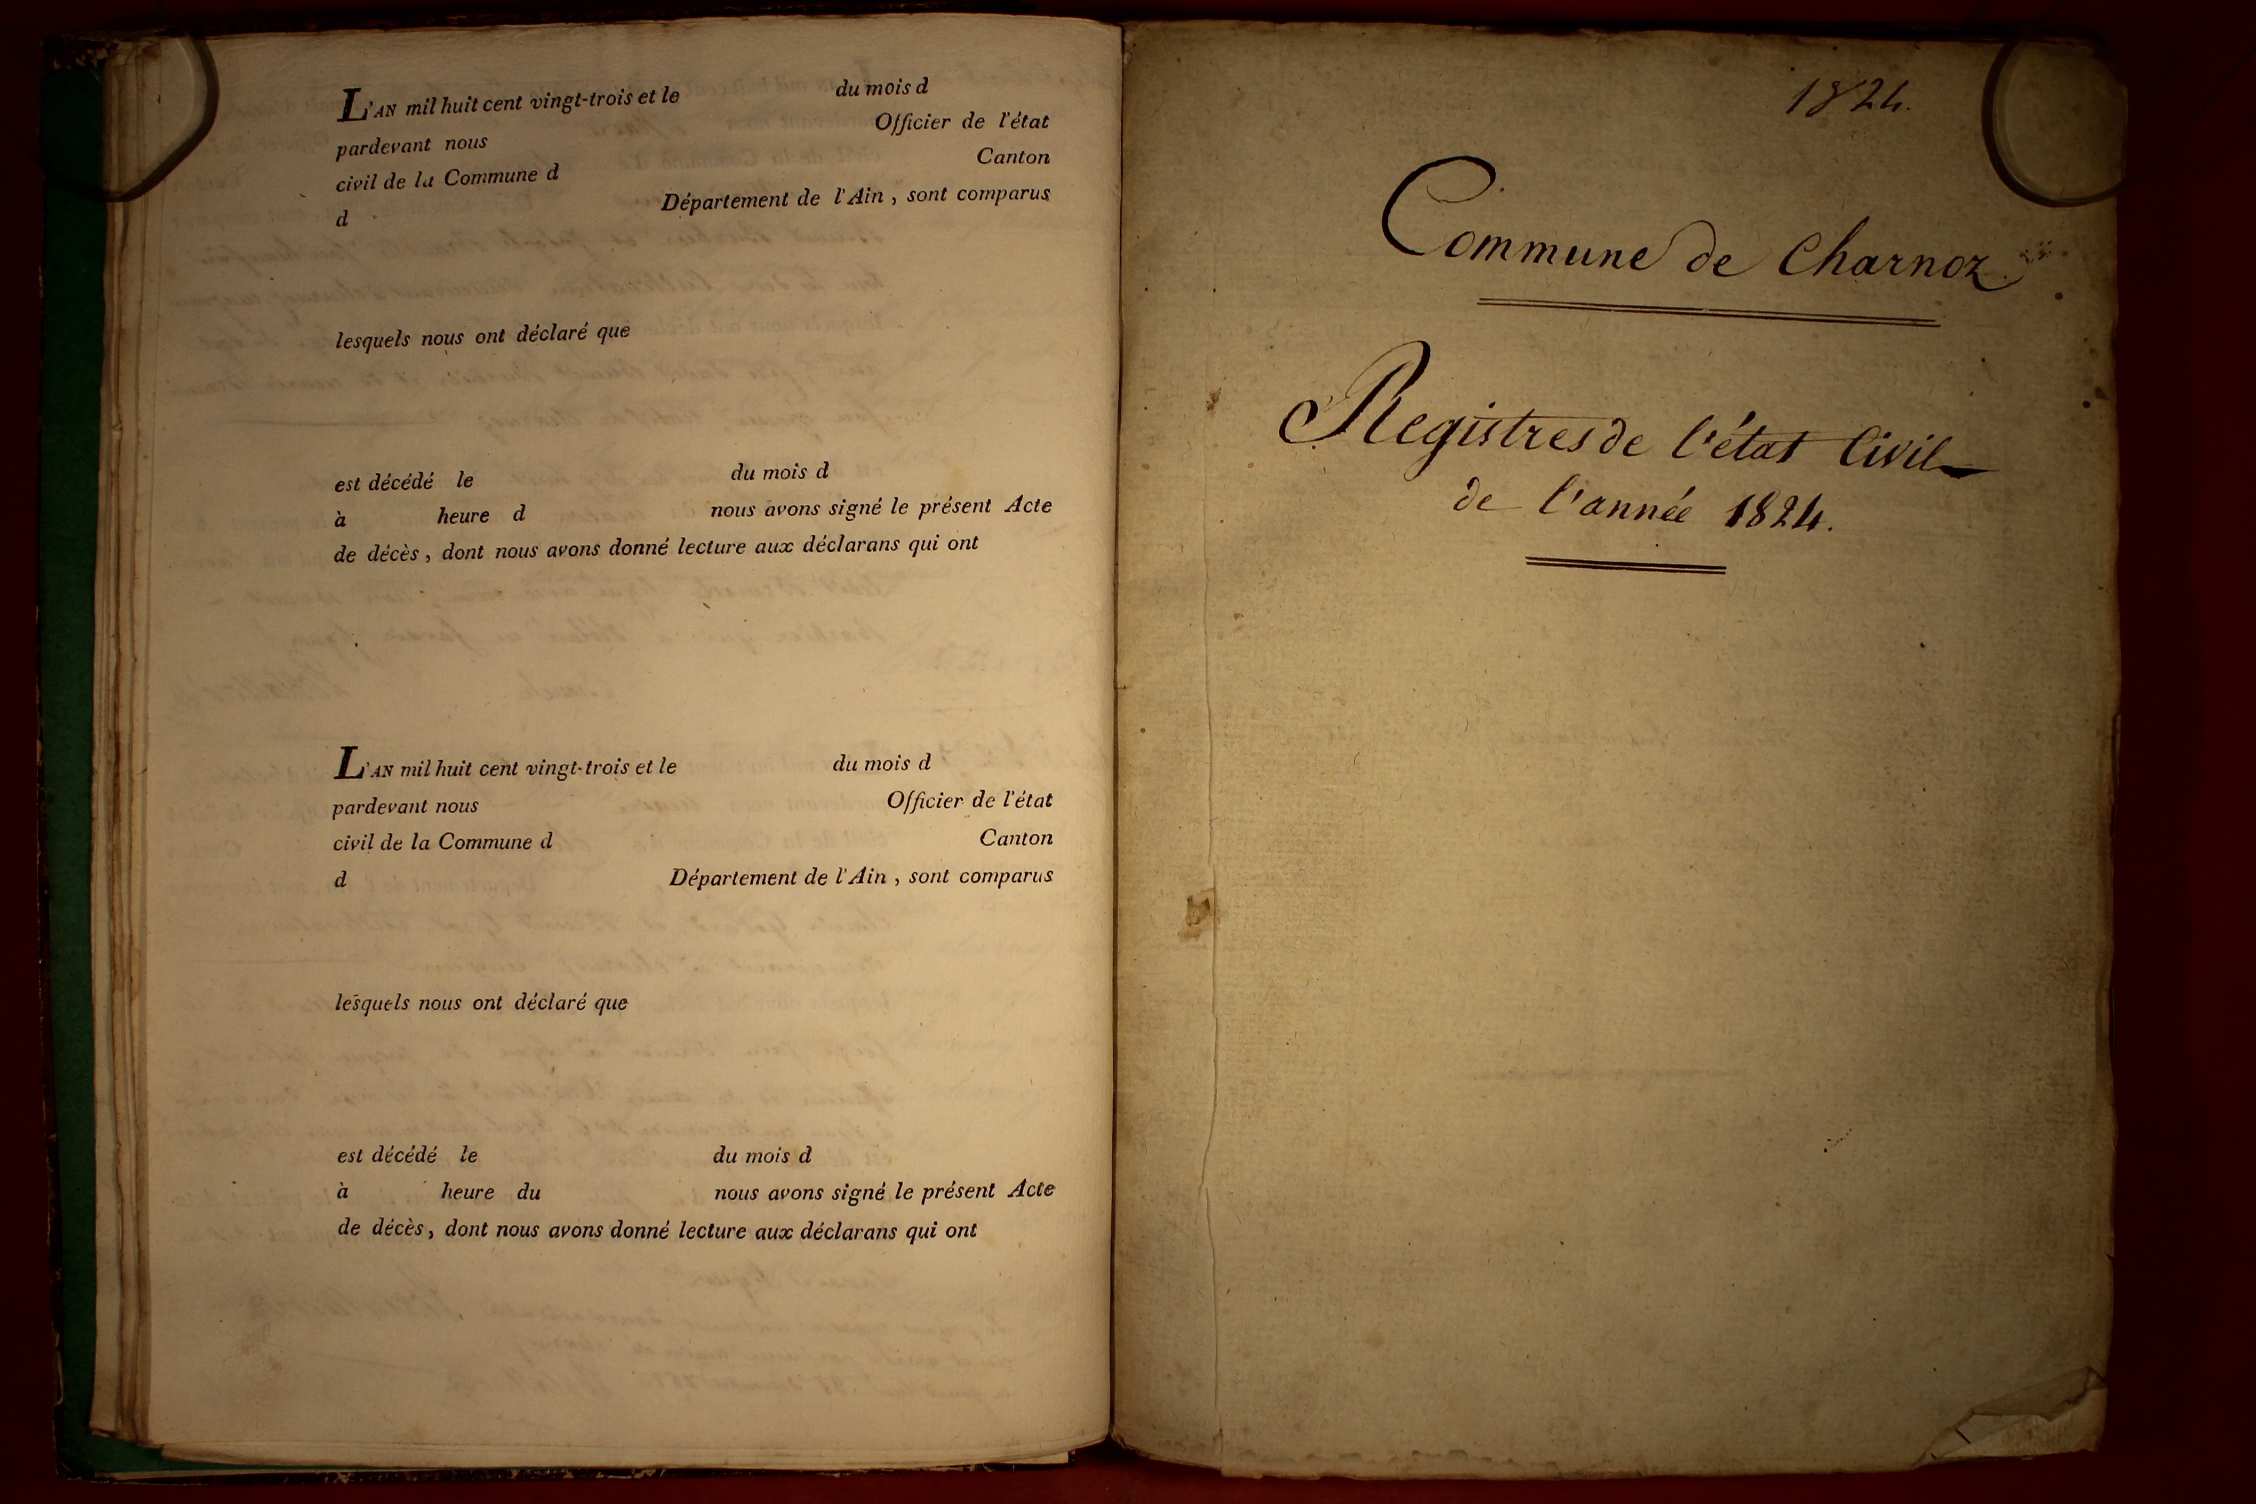 L'AN mil huit cent vingt-trois et le du mois d
pardevant nous Officier de l'état
civil de la Commune d Canton
d Département de l'Ain, sont comparus
lesquels nous ont déclaré que
est décédé le du mois d
à heure d nous avons signé le présent Acte
de décès, dont nous avons donné lecture aux déclarans qui ont
L'AN mil huit cent vingt-trois et le du mois d
pardevant nous Officier de l'état
civil de la Commune d Canton
d Département de l'Ain, sont comparus
lesquels nous ont déclaré que
est décédé le du mois d
à heure du nous avons signé le présent Acte
de décès, dont nous avons donné lecture aux déclarans qui ont
1824.
Commune de Charnoz
Registres de l'état Civil
de l'année 1824.